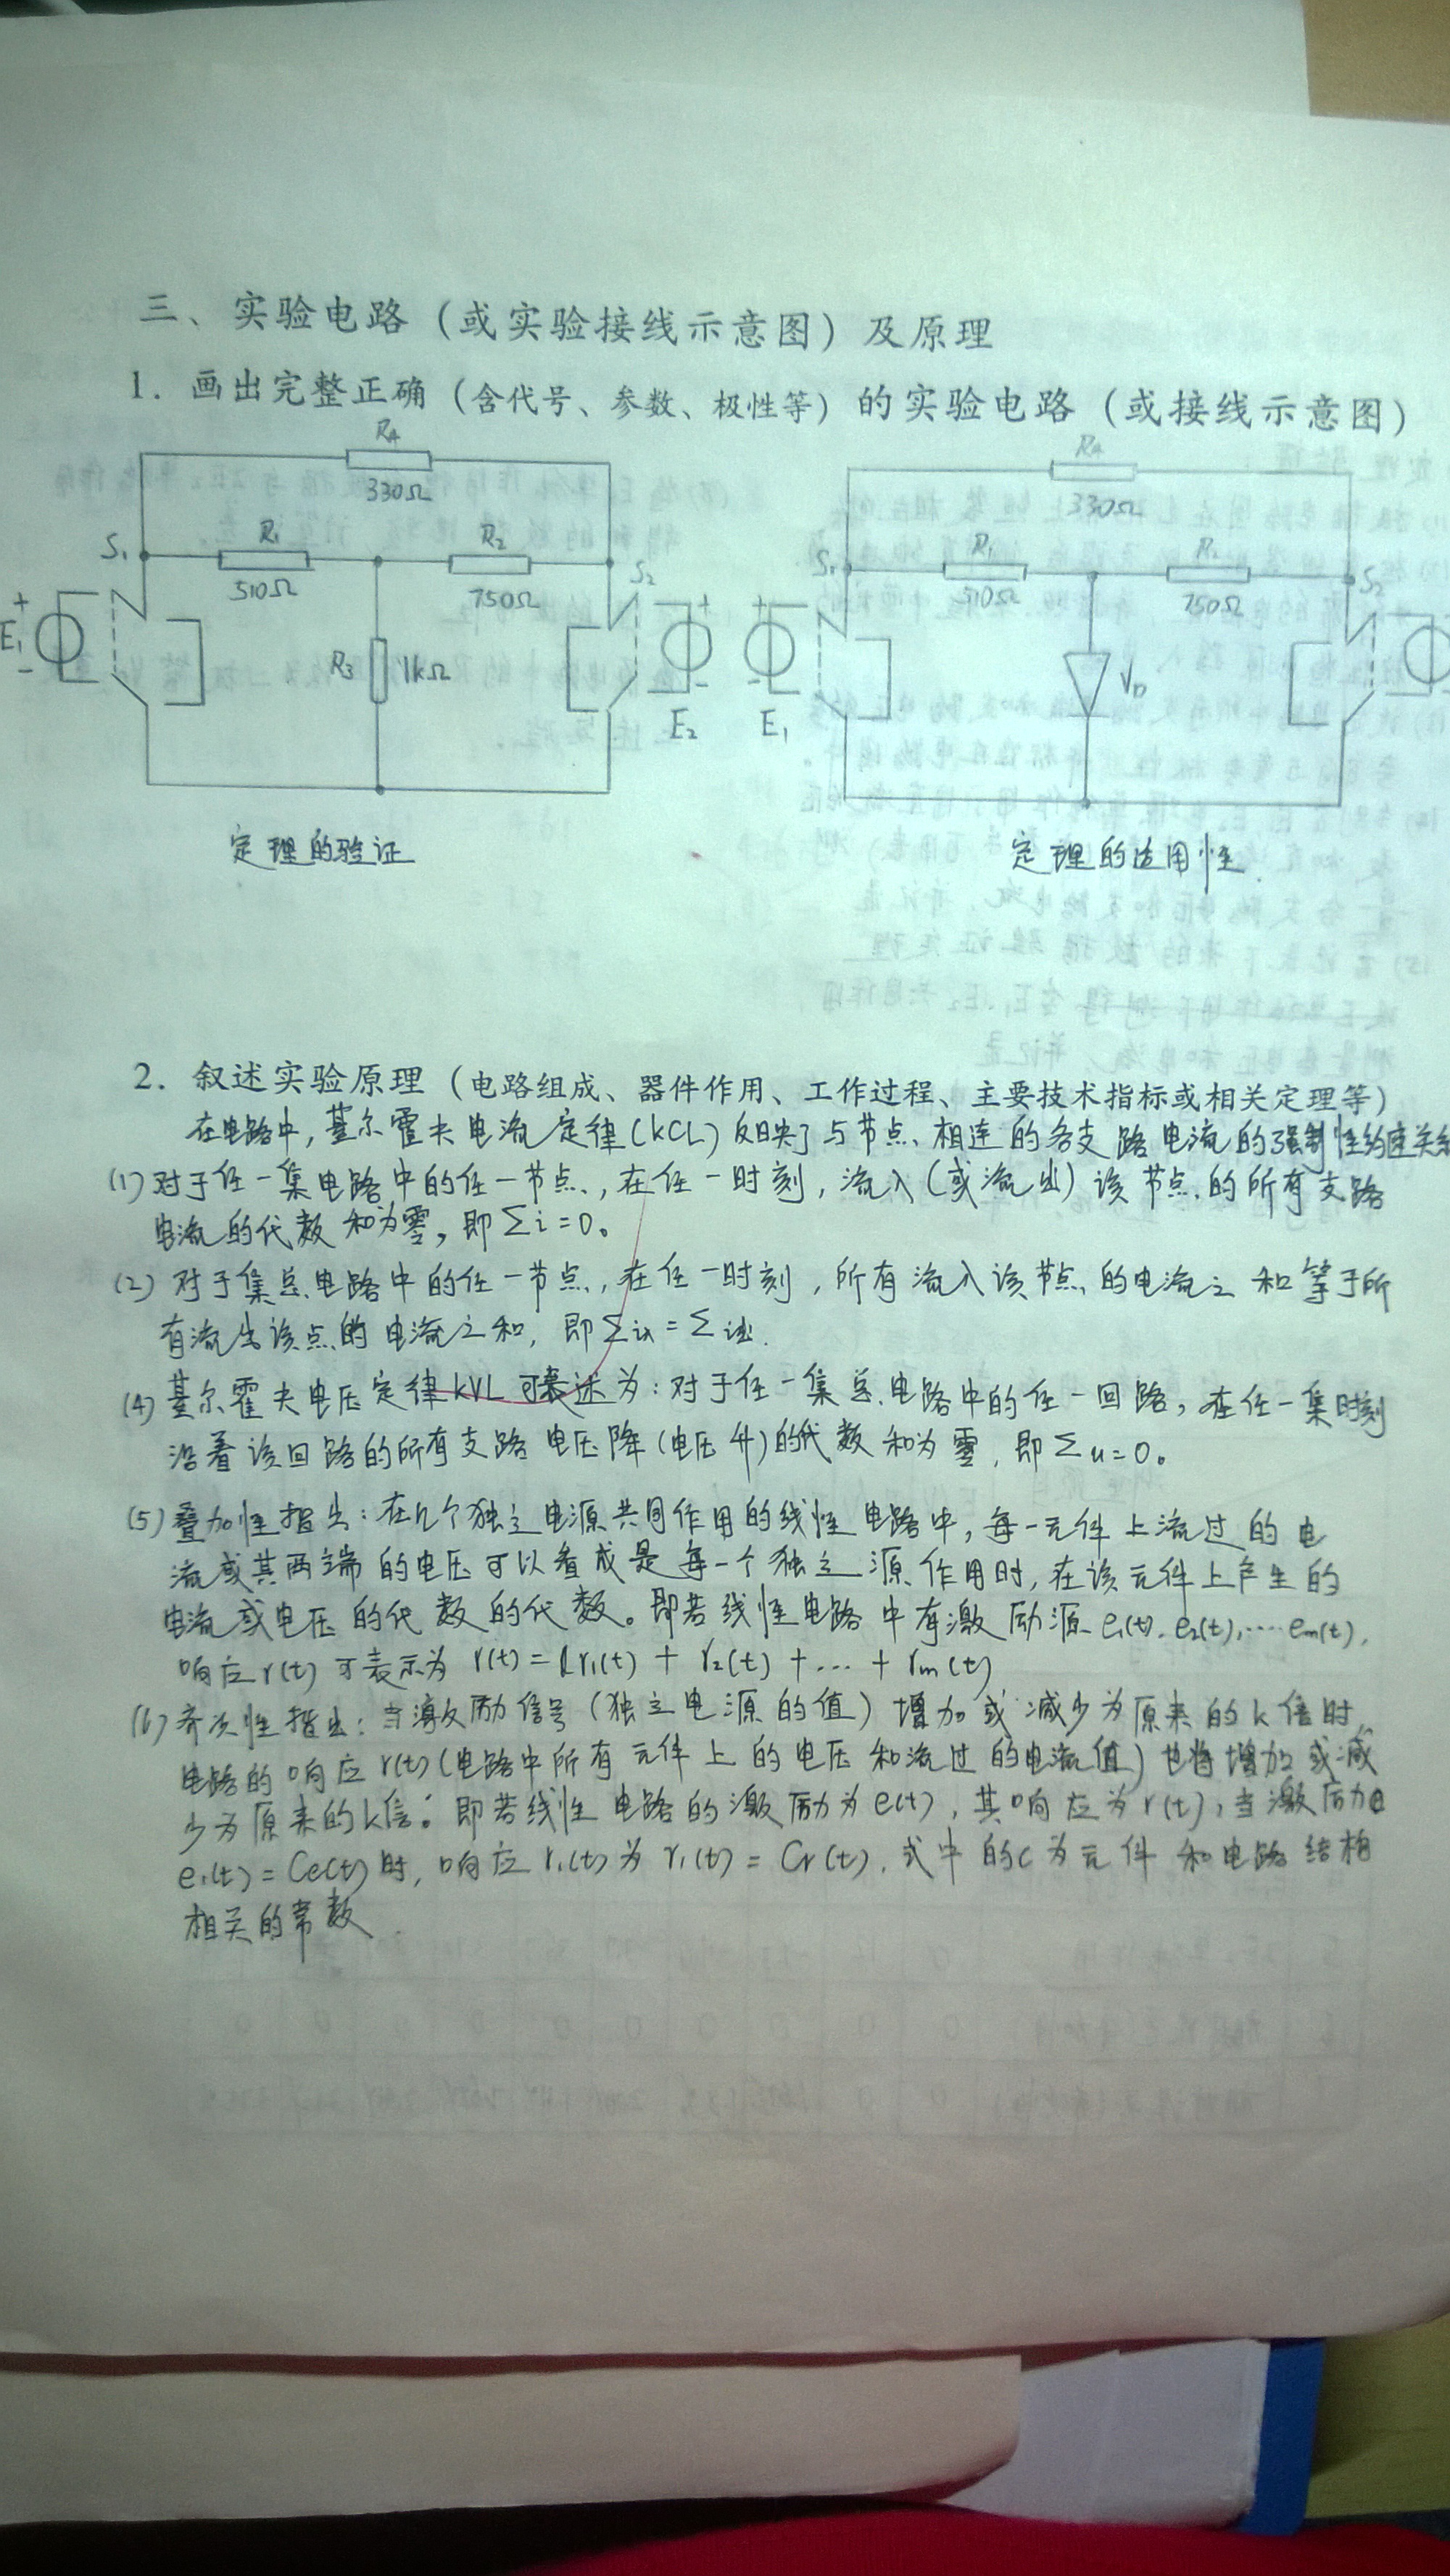 三、实验电路（或实验接线示意图）及原理
1. 画出完整正确（含代号、参数、极性等）的实验电路（或接线示意图）
R4
330Ω
S1
R1
510Ω
R2
750Ω
S2
+
E1
-
R3
1kΩ
+
-
E2
定理的验证
R4
330Ω
S1
R1
510Ω
R2
750Ω
S2
+
-
E1
VD
定理的适用性.
2. 叙述实验原理（电路组成、器件作用、工作过程、主要技术指标或相关定理等）
在电路中，基尔霍夫电流定律(KCL)反映了与节点相连的各支路电流的强制性约束关系
(1) 对于任一集电路中的任一节点，在任一时刻，流入(或流出)该节点的所有支路
电流的代数和为零，即Σi=0。
(2) 对于集总电路中的任一节点，在任一时刻，所有流入该节点的电流之和等于所
有流出该点的电流之和，即Σi入=Σi出.
(4) 基尔霍夫电压定律KVL可表述为：对于任一集总电路中的任一回路，在任一集时刻
沿着该回路的所有支路电压降(电压升)的代数和为零，即Σu=0。
(5) 叠加性指出：在几个独立电源共同作用的线性电路中，每一元件上流过的电
流或其两端的电压可以看成是每一个独立源作用时，在该元件上产生的
电流或电压的代数的代数。即若线性电路中有激励源e1(t).e2(t),….em(t),
响应r(t)可表示为 r(t)=r1(t)+r2(t)+…+rm(t)
(6) 齐次性指出：当激励信号(独立电源的值)增加或减少为原来的k倍时，
电路的响应r(t)(电路中所有元件上的电压和流过的电流值)也将增加或减
少为原来的k倍。即若线性电路的激励为e(t)，其响应为r(t)，当激励
e1(t)=Ce(t)时，响应r1(t)为r1(t)=Cr(t)，式中的c为元件和电路结构
相关的常数.